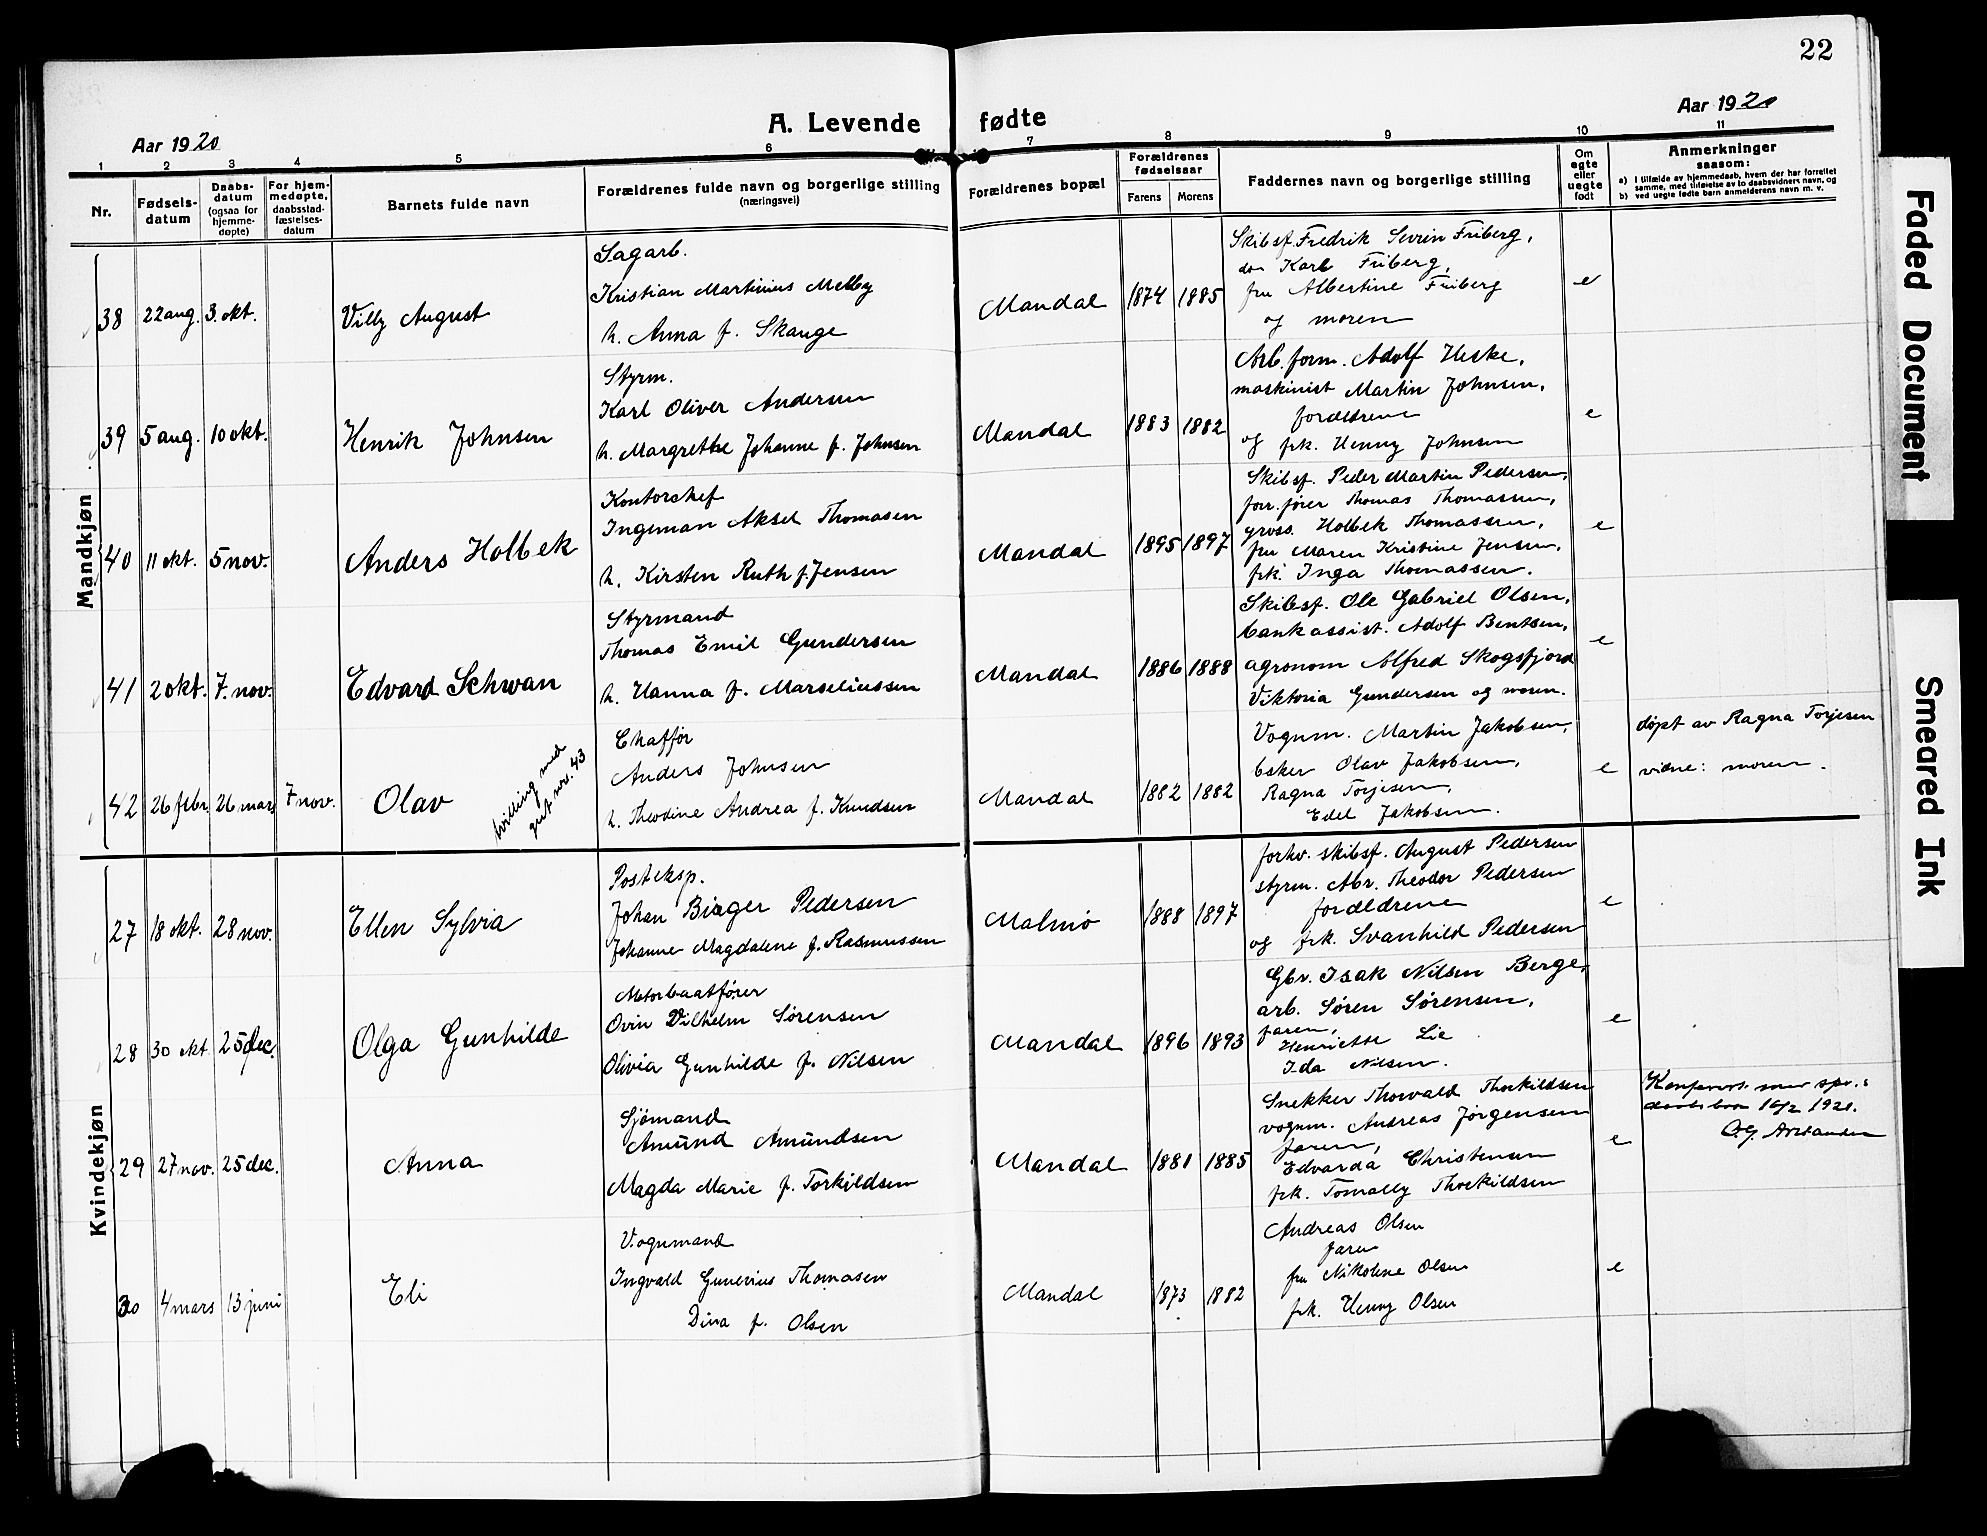 22
Aar 1920
A. Levende fødte
Aar 1920
1 2 3 4 5 6 7 8 9 10 11
Nr.
Fødsels-
datum
Daabs-
datum
(ogsaa for
hjemme-
døpte)
For hjem-
medøpte,
daabsstad-
fæstelses-
datum
Barnets fulde navn
Forældrenes fulde navn og borgerlige stilling
(næringsvei)
Forældrenes bopæl
Forældrenes
fødselsaar
Farens Morens
Faddernes navn og borgerlige stilling
Om
egte
eller
uegte
født
Anmerkninger
saasom:
a) I tilfælde av hjemmedaab, hvem der har forrettet
samme, med tilføielse av to daabsvidners navn, og
b) ved uegte fødte barn anmelderens navn m. v.
Mandkjøn
38 22 aug. 3. okt.
Villy August
Sagarb.
Kristian Martinius Melby
h. Anna f. Skauge
Mandal 1874 1885
Skibsf. Fredrik Sevrin Friberg,
do Karl Friberg,
fru Albertine Friberg
og moren
e
39 5 aug. 10 okt.
Henrik Johnsen
Styrm.
Karl Oliver Andersen
h. Margrethe Johanne f. Johnsen
Mandal 1883 1882
Arb.form. Adolf Heske,
maskinist Martin Johnsen,
forældrene
og frk. Henny Johnsen
e
40 11 okt. 5 nov.
Anders Holbek
Kontorchef
Ingeman Aksel Thomasen
h. Kirsten Ruth f. Jensen
Mandal 1895 1897
Skibsf. Peder Martin Pedersen,
forr.fører Thomas Thomassen,
gross. Holbek Thomassen,
fru Maren Kristine Jensen,
frk. Inga Thomassen.
e
41 2 okt. 7. nov.
Edvard Schwan
Styrmand
Thomas Emil Gundersen
h. Hanna f. Marseliussen
Mandal 1886 1888
Skibsf. Ole Gabriel Olsen,
bankassist. Adolf Bentsen,
agronom Alfred Skogsfjord
Viktoria Gundersen og moren.
e
42 26 febr. 26 mars 7 nov.
Olav
tvilling med
gut nr. 43
Chaffør
Anders Johnsen
h. Theodine Andrea f. Knudsen
Mandal 1882 1882
Vognm. Martin Jakobsen,
Esker Olav Jakobsen,
Ragna Torjesen,
Edel Jakobsen.
e
døpt av Ragna Torjesen
vidne: moren.
Kvindekjøn
27 18 okt. 28 nov.
Ellen Sylvia
Posteksp.
Johan Birger Pedersen
Johanne Magdalene f. Rasmussen
Malmö 1888 1897
forhv. skibsf. August Pedersen
styrm. Abr. Theodor Pedersen
forældrene
og frk. Svanhild Pedersen
e
28 30 okt. 25 dec.
Olga Gunhilde
Motorbaatfører
Ovin Vilhelm Sørensen
Olivia Gunhilde f. Nilsen
Mandal 1896 1893
Gbr. Isak Nilsen Berge,
arb. Søren Sørensen,
faren,
Henriette Lie
Ida Nilsen.
e
29 27 nov. 25 dec.
Anna
Sjömand
Amund Amundsen
Magda Marie f. Torkildsen
Mandal 1881 1885
Snekker Thorvald Thorkildsen
vognm. Andreas Jørgensen
faren,
Edvarda Christensen
frk. Tomally Thorkildsen
e
16/2 1921.
30 4 mars 13 juni
Eli
Vognmand
Ingvald Gunerius Thomasen
Dina f. Olsen
Mandal 1873 1882
Andreas Olsen
faren
fru Nikoline Olsen
frk. Henny Olsen
e
Faded Document
Smeared Ink